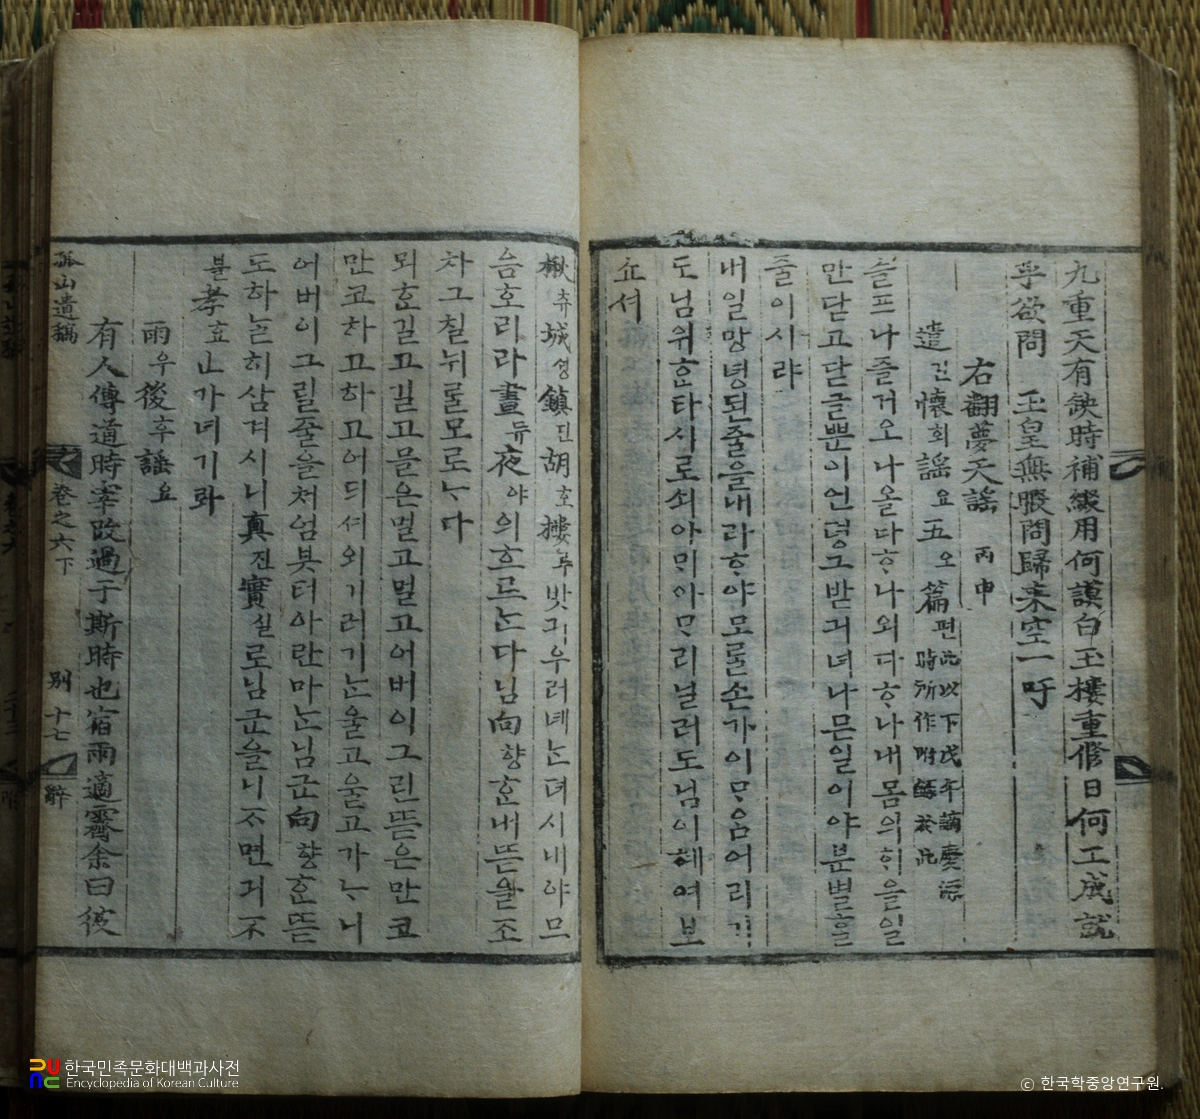 九重天有缺時補綴用何謨白玉樓重修日何工成就
乎欲問 玉皇無暇問歸來空一吁
右翻夢天謠 丙申
遣견懷회謠요五오篇편 此以下戊午謫慶源時所作附錄於此
슬프나즐거오나올타ᄒᆞ나외다ᄒᆞ나내몸의ᄒᆡ올일
만닫고닫글뿐이언뎡그받긔녀나믄일이야분별ᄒᆞᆯ
줄이시랴
내일망녕된줄을내라ᄒᆞ야모ᄅᆞᆯ손가이ᄆᆞ음어리기
도님위ᄒᆞᆫ타시로쇠아ᄆᆡ아ᄆᆞ리닐러도님이혜여보
쇼셔
楸츄城셩鎭딘胡호樓루밧긔우러녜ᄂᆞᆫ뎌시내야므
음호리라晝듀夜야의흐르ᄂᆞᆫ다님向향ᄒᆞᆫ내뜯을조
차그칠뉘ᄅᆞᆯ모로ᄂᆞ다
뫼흔길고길고믈은멀고멀고어버이그린뜯은만코
만코하고하고어듸셔외기러기ᄂᆞᆫ울고울고가ᄂᆞ니
어버이그릴줄을처엄붓터아란마ᄂᆞᆫ님군向향ᄒᆞᆫ뜯
도하ᄂᆞᆯ히삼겨시니眞진實실로님군을니ᄌᆞ면긔不
블孝효ㅣㄴ가녀기롸
雨우後후謠요
有人傳道時宰改過于斯時也宿雨適霽余曰彼
孤山遺稿 卷之六下 別 十七 辭
한국민족문화대백과사전
Encyclopedia of Korean Culture
ⓒ 한국학중앙연구원.